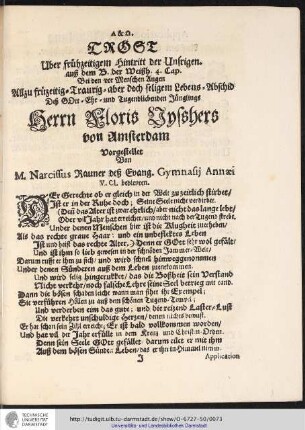 A & Ω.
TROST
Uber frühzeitigem Hintritt der Unsrigen.
auß dem B. der Weißh. 4. Cap.
Bei den vor Menschen Augen
Allzu früzeitig-Traurig-aber doch seligem Lebens-Abschid
Deß GOtt-Ehr-und Tugendliebenden Jünglings
Herrn Floris
von Amsterdam
Vorgestellet
Von
M. Narcissus Rauner deß Evang. Gymnasij Annæi
V. Cl.
Der Gerechte ob er gleich in der Welt zu zeitlich stirbet/
Ist er in der Ruhe doch; Seine Seele nicht verdirbet.
(Dañ das Alter ist zwar ehrlich/aber nicht das lange lebt/
Oder vil Jahr hat erreichet/und nicht nach der Tugend strebt.
Under denen Menschen hier ist die Klugheit
Als das rechte graue Haar: und ein unbeflecktes Leben
Ist und heist das rechte Alter.) Denn er GOtt sehr wol gefält/
Und ist ihm so lieb gewesen in der schnöden Jammer-Welt/
Darum rufft er ihm zu sich/ und wird schnell hinweggenommen
Under denen Sünderen auß dem Leben
Und wird selig hingerucket/ das die Boßheit sein Verstand
Nicht verkehr/noch falsche Lehre seine Seel
Dann die bösen schaden leicht wann man ihr Exempel;
Sie verführen auß dem schönen Tugend-Tempel;
Und verderben eim das gute: und die reitzend Laster-Lust
Die verkehret unschuldige Hertzen/ denen nichts bewust.
Er hat schon sein Zihl erreicht; Er ist bald vollkommen worden/
Und hat vil der Jahr erfülle in dem Kreuz und Christen-Orden.
Denn sein Seele GOtt gefället: darum eilet er mit ihm
Auß dem bösen Sünden Leben/ das er
J
Application
TECHNISCHE UNIVERSITÄT DARMSTADT
http://tudigit.ulb.tu-darmstadt.de/show/O-6727-50/0073
Universitäts- und Landesbibliothek Darmstadt